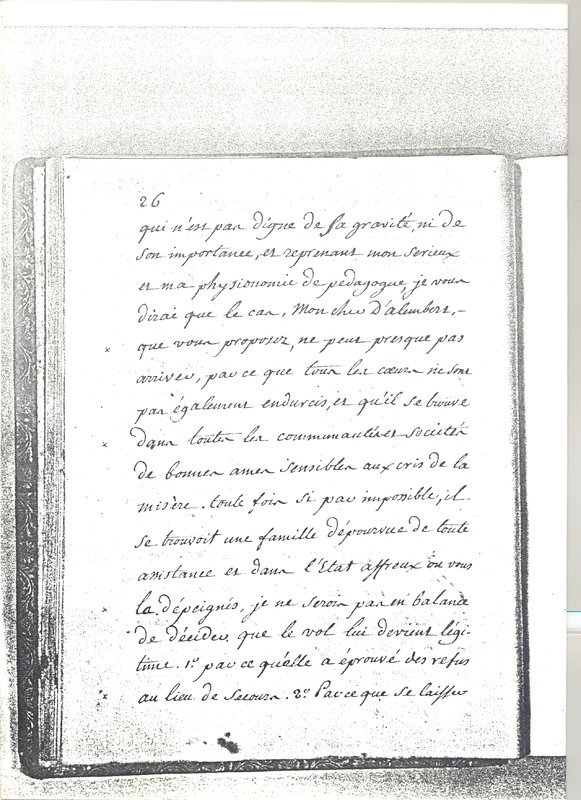 26
qui n'est pas digne de sa gravité, ni de
son importance, et reprenant mon serieux
et ma physionomie de pedagogue, je vous
dirai que le cas, Mon cher D'alembert, -
x que vous proposez, ne peut presque pas
arriver, parce que tous les cœurs ne sont
pas également endurcis, et qu'il se trouve
x dans toutes les communautés et societés
de bonnes ames sensibles aux cris de la
misère. toute fois si par impossible, il
se trouvoit une famille dépourvue de toute
assistance et dans l'Etat affreux ou vous
x la dépeignés, je ne serois pas en balance
de décider que le vol lui devient légi-
time. 1.º parce qu'elle a éprouvé des refus
x au lieu de secours. 2.º Parce que se laisser